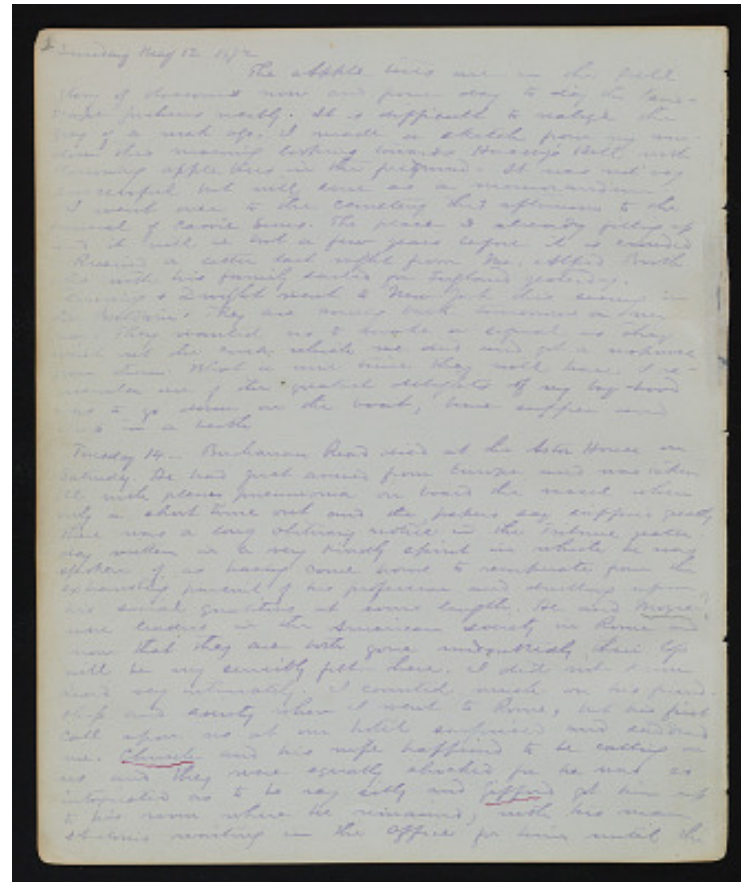 Sunday May 12 1872
The apple trees are in their full
glory of blossoms now and from day to day the
It is difficult to realize the
of a week ago. I made a sketch from my win-
dow this morning looking towards Hussey's Hill with
blossoming apple trees in the foreground. It was not very
successful but will serve as a memorandum.
I went over to the cemetery this afternoon to the
funeral of Carrie The place is already filling up
and it will be but a few years before it is crowded
Received a letter last night from Mr. Alfred Booth
who with his family sailed for England yesterday.
& Dwight went to New York this evening in
the They are coming back tomorrow
They wanted us to a signal as they
the creek which we did and got a response
from them. What a nice time they will have. I re-
member one of the greatest delights of my boy-hood
was to go down on the boat, have supper and
in a berth
Tuesday 14 - Buchanan Read died at the Astor House on
Saturday. He had just arrived from Europe and was taken
ill with pleuro pneumonia on board the vessel when
only a short time out and the papers say suffered greatly
There was a long obituary notice in the Tribune yester-
day written in a very kindly spirit in which he was
spoken of as having come home to recuperate from the
exhausting pursuit of his profession and dwelling upon
his social qualities at some length. He and
were leaders in the American society in Rome &
now that they are both gone undoubtedly their loss
will be very sensibly felt there. I did not know
Read very intimately. I counted much on his friend-
ship and society when I went to Rome, but his first
call upon us at our hotel surprised and saddened
me. Church and his wife happened to be calling on
us and they were equally shocked for he was so
intoxicated as to be very silly and Gifford got him up
to his room where he remained, with his man
waiting in the office for him until the